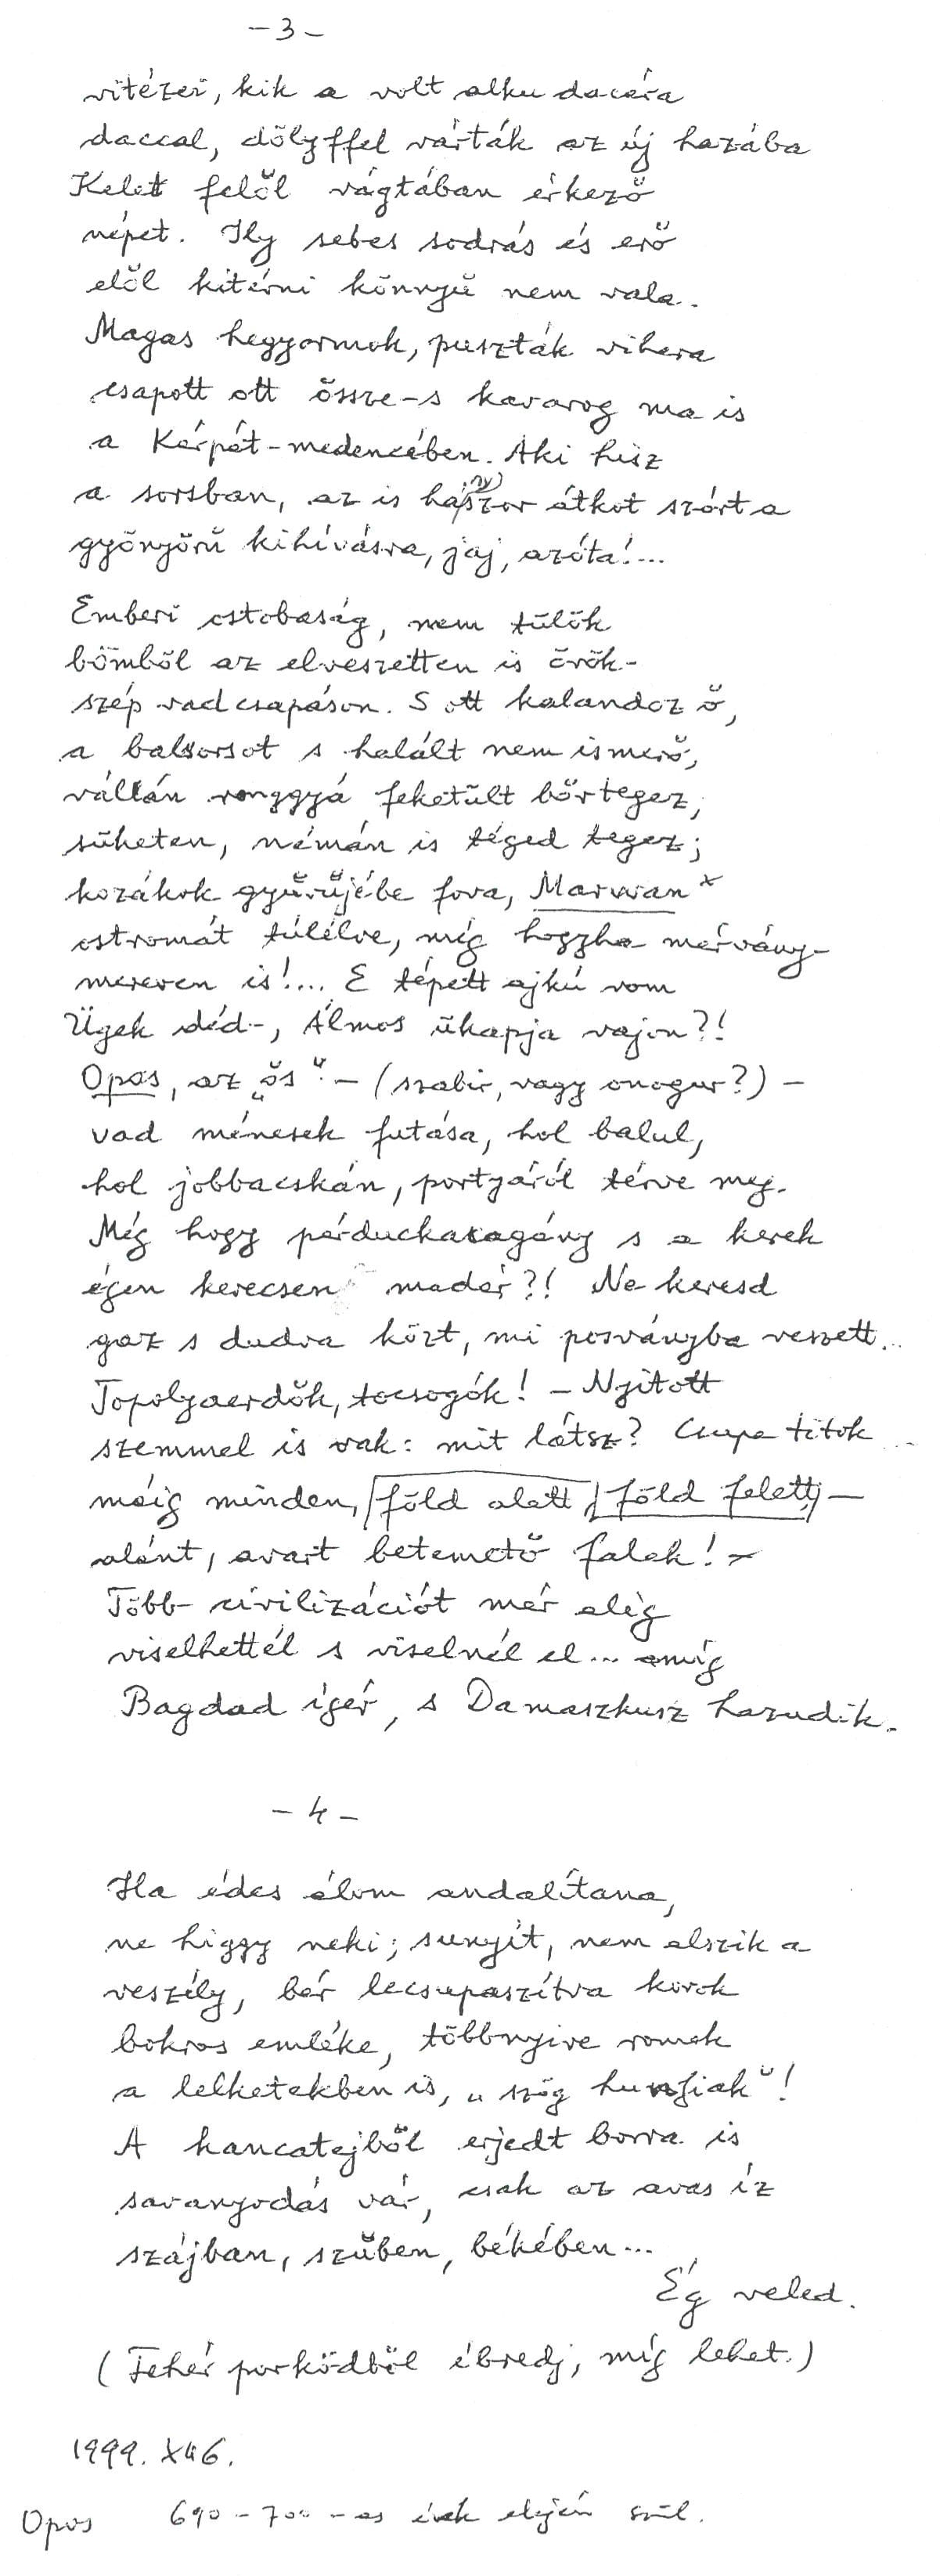 - 3 -
vitézei, kik a volt alku dacára
daccal, dölyffel várták az új hazába
Kelet felől vágtában érkező
népet. Ily sebes sodrás és erő
elől kitérni könnyű nem vala.
Magas hegyormok, puszták vihara
csapott ott össze - s kavarog ma is
a Kárpát-medencében. Aki hisz
a sorsban, az is hányszor átkot szórt a
gyönyörű kihívásra, jaj, azóta!...
Emberi ostobaság, nem tülök
bömböl az elveszetten is örök-
szép vadcsapáson. S ott kalandoz ő,
a balsorsot s halált nem ismerő,
vállán ronggyá feketült bőrtegez,
süketen, némán is téged tegez;
kozákok gyűrűjébe fova, Marwan*
ostromát túlélve, míg hozzha márvány-
mereven is!... E tépett ajkú rom
Ügek déd-, Álmos ükapja vajon?!
Opos, az „ős" - (szabir, vagy onogur?) -
vad ménesek futása, hol balul,
hol jobbacskán, portyáról térve meg.
Még hogy párduckacagány s a kerek
égen kerecsen madár?! Ne keresd
gaz s dudva közt, mi posványba veszett...
Topolyaerdők, tocsogók! - Nyitott
szemmel is vak: mit látsz? Csupa titok
máig minden, föld alatt, föld felett, -
alánt, avart betemető falak! -
Több civilizációt már elég
viselhettél s viselnél el... míg
Bagdad ígér, s Damaszkusz hazudik.
- 4 -
Ha édes álom andalítana,
ne higgy neki; sunyít, nem alszik a
veszély, bár lecsupaszítva korok
bokros emléke, többnyire romok
a lelketekben is, „szög hunfiak"!
A kancatejből erjedt borra is
savanyodás vár, csak az avas íz
szájban, szűben, békében...
Ég veled.
(Fehér porködből ébredj, míg lehet.)
1999. XII6.
Opos 690-700-as évek elején szül.